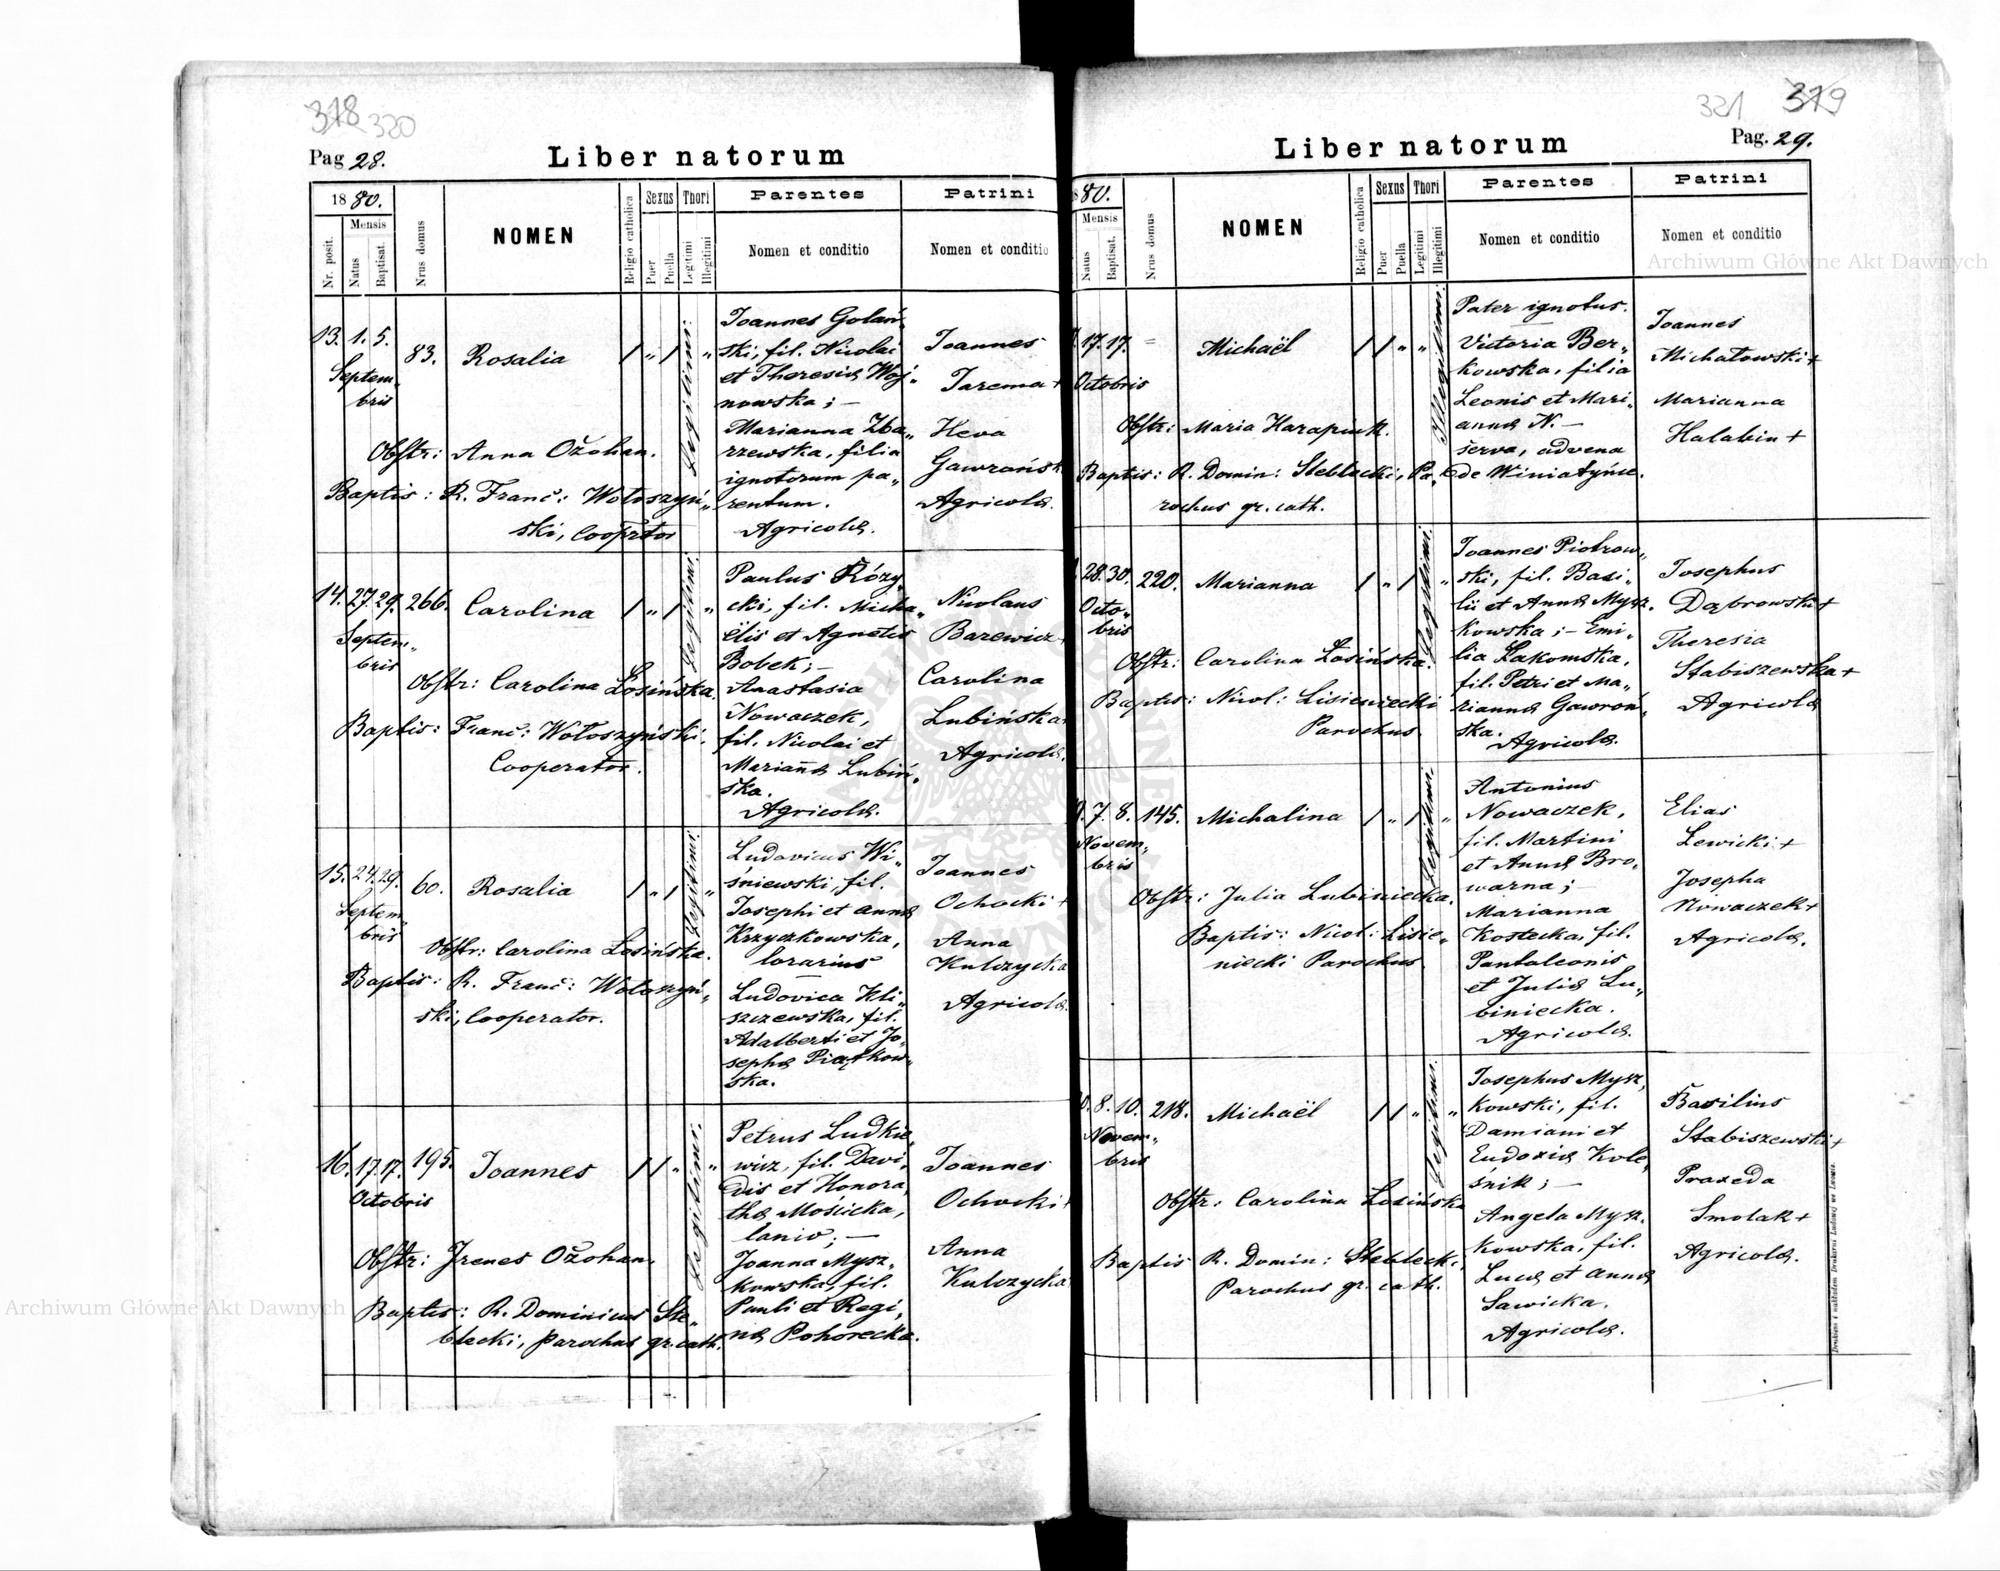 318 320
Pag 28.
Liber natorum
1880.
Nr. posit.
Mensis
Natus
Baptisat.
Nrus domus
NOMEN
Religio catholica
Sexus
Puer
Puella
Thori
Legitimi
Illegitimi
Parentes
Nomen et conditio
Patrini
Nomen et conditio
13. 1. 5.
Septem-
bris
83.
Rosalia
/ „ / „
Legitimi.
Obstr: Anna Ożohan.
Baptis: R. Franc: Wołoszyń„
ski, Cooprtor
Joannes Golań„
ski, fil. Nicolai
et Theresiæ Woj„
nowska; —
Marianna Zba„
rzewska, filia
ignotorum pa„
rentum.
Agricolæ.
Joannes
Jarema +
Heva
Gawrońsk
Agricolæ.
14. 27. 29.
Septem„
bris
266.
Carolina
/ „ / „
Legitimi.
Obstr: Carolina Łosińska.
Baptis: Franc: Wołoszyński.
Cooperator.
Paulus Rózy„
cki, fil. Micha„
ëlis et Agnetis
Bobek; —
Anastasia
Nowaczek,
fil. Nicolai et
Mariañæ Lubiń„
ska.
Agricolæ.
Nicolaus
Barewicz +
Carolina
Lubińska
Agricolæ.
15. 24. 29.
Septem
bris
60.
Rosalia
/ „ / „
Legitimi.
Obstr: Carolina Łosińska.
Baptis: R. Franc: Wołoszyń„
ski, Cooperator.
Ludovicus Wi„
śniewski, fil.
Josephi et Annæ
Krzyczkowska,
lorarius
Ludovica Kli„
szczewska, fil.
Adalberti et Jo„
sephæ Piątkow„
ska.
Joannes
Ochocki +
Anna
Kulczycka
Agricolæ.
16. 17. 17.
Octobris
195.
Joannes
/ / „ „
Legitimi.
Obstr: Irenes Ożohan.
Baptis: R. Dominicus Ste„
blecki, parochus gr. cath.
Petrus Ludkie„
wicz, fil. Davi„
dis et Honora„
thæ Mościcka,
lanio; —
Joanna Mysz„
kowska, fil.
Pauli et Regi„
næ Pohorecka.
Joannes
Ochocki +
Anna
Kulczycka
321 319
Pag. 29.
Liber natorum
80.
Mensis
Natus
Baptisat.
Nrus domus
NOMEN
Religio catholica
Sexus
Puer
Puella
Thori
Legitimi
Illegitimi
Parentes
Nomen et conditio
Patrini
Nomen et conditio
17. 17.
Octobris
=
Michaël
/ / „ „
Illegitimi.
Obstr: Maria Harapiuk.
Baptis: R. Domin: Steblecki, Pa„
rochus gr. cath.
Pater ignotus.
Victoria Ber„
kowska, filia
Leonis et Mari„
annæ N. —
serva, advena
de Winiatyńce.
Joannes
Michałowski +
Marianna
Halabin +
28. 30.
Octo„
bris
220.
Marianna
/ „ / „
Legitimi.
Obstr: Carolina Łosińska.
Baptis: Nicol: Lisieniecki
Parochus
Joannes Piotrow„
ski, fil. Basi„
lii et Annæ Mysz„
kowska; — Emi„
lia Łakomska,
fil. Petri et Ma„
riannæ Gawroń„
ska.
Agricolæ.
Josephus
Dąbrowski +
Theresia
Stabiszewska +
Agricolæ
7. 8.
Novem„
bris
145.
Michalina
/ „ / „
Legitimi
Obstr: Julia Lubiniecka.
Baptis: Nicol: Lisie„
niecki Parochus
Antonius
Nowaczek,
fil. Martini
et Annæ Bro„
warna; —
Marianna
Kostecka, fil.
Pantaleonis
et Juliæ Lu„
biniecka.
Agricolæ.
Elias
Lewicki +
Josepha
Nowaczek +
Agricolæ.
8. 10.
Novem„
bris
218.
Michaël
/ / „ „
Legitimi.
Obstr: Carolina Łosińska
Baptis R. Domin: Steblecki,
Parochus gr. cath.
Josephus Mysz„
kowski, fil.
Damiani et
Eudoxiæ Kole„
śnik; —
Angela Mysz„
kowska, fil.
Lucæ et Annæ
Sawicka.
Agricolæ.
Basilius
Stabiszewski +
Praxeda
Smolak +
Agricolæ.
Drukiem i nakładem Drukarni Ludowej we Lwowie.
Archiwum Główne Akt Dawnych
Archiwum Główne Akt Dawnych